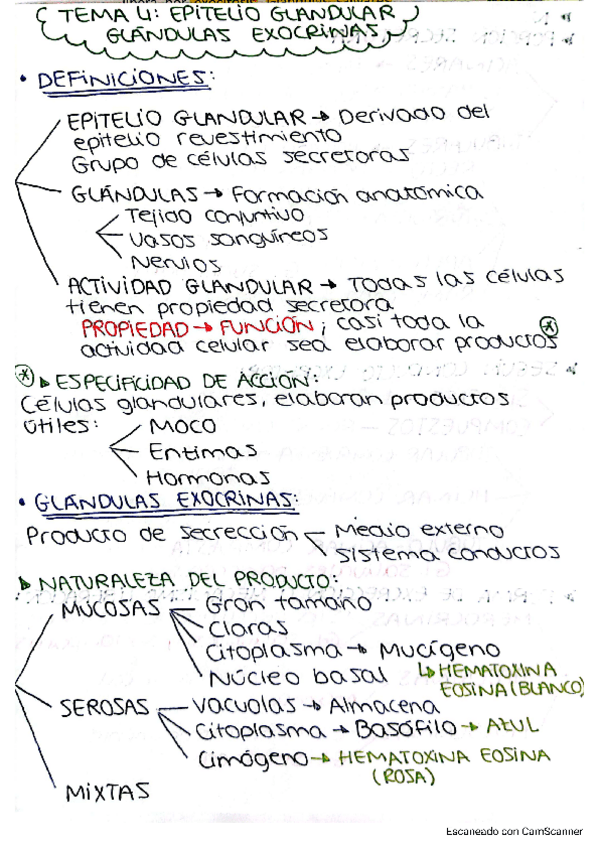 TEMA 4: EPITELIO GLANDULAR
GLÁNDULAS EXOCRINAS
• DEFINICIONES:
EPITELIO GLANDULAR → Derivado del
epitelio revestimiento
Grupo de células secretoras
GLÁNDULAS → Formación anatómica
Tejido conjuntivo
Vasos sanguíneos
Nervios
ACTIVIDAD GLANDULAR → Todas las células
tienen propiedad secretora
PROPIEDAD → FUNCIÓN; casi toda la
actividad celular sea elaborar productos *
* ESPECIFICIDAD DE ACCIÓN:
Células glandulares, elaboran productos
útiles:
Moco
Entimas
Hormonas
• GLÁNDULAS EXOCRINAS:
Producto de secrección
Medio externo
Sistema conductos
NATURALEZA DEL PRODUCTO:
MUCOSAS
Gran tamaño
Claras
Citoplasma → Mucígeno
Núcleo basal
↳ HEMATOXINA
EOSINA (BLANCO)
SEROSAS
Vacuolas → Almacena
Citoplasma → Basófilo → AZUL
Cimógeno → HEMATOXINA EOSINA
(ROSA)
MIXTAS
Escaneado con CamScanner